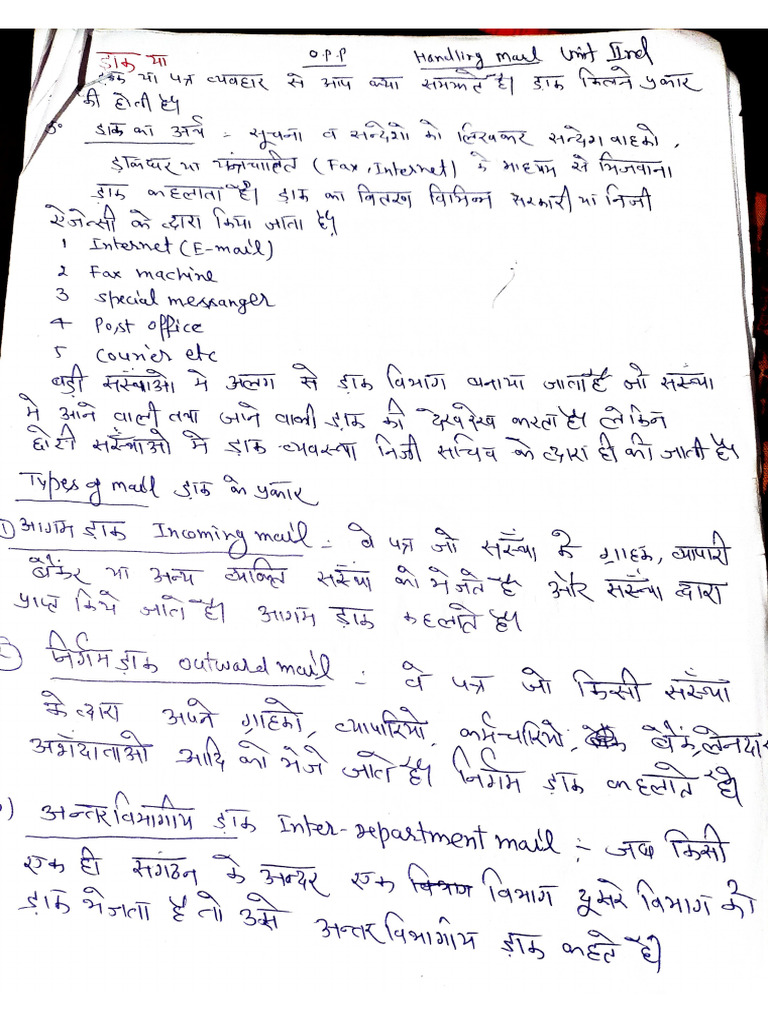 डाक या O.P.P Handling Mail Unit IInd
डाक या पत्र व्यवहार से आप क्या समझते है। डाक कितने प्रकार
की होती है।
डाक का अर्थ :- सूचना व सन्देशो को लिखकर सन्देशवाहको,
डाकघर या यंत्रचालित (Fax, Internet) के माध्यम से भिजवाना
डाक कहलाता है। डाक का वितरण विभिन्न सरकारी या निजी
ऐजेन्सी के द्वारा किया जाता है।
1 Internet (E-mail)
2 Fax machine
3 special messanger
4 Post office
5 Courier etc
बडी संस्थाओ मे अलग से डाक विभाग बनाया जाता है जो संस्था
मे आने वाली तथा जाने वाली डाक की देखरेख करता है। लेकिन
छोटी संस्थाओ मे डाक व्यवस्था निजी सचिव के द्वारा ही की जाती है।
Types of mail डाक के प्रकार
① आगम डाक Incoming mail :- वे पत्र जो संस्था के ग्राहक, व्यापारी
बैंकर या अन्य व्यक्ति संस्था को भेजते है और संस्था द्वारा
प्राप्त किये जाते है। आगम डाक कहलाते है।
② निर्गम डाक outward mail :- वे पत्र जो किसी संस्था
के द्वारा अपने ग्राहको, व्यापारियो, कर्मचारियो, बैंक, लेनदार
अंशदाताओ आदि को भेजे जाते है। निर्गम डाक कहलाते है।
) अन्तरविभागीय डाक Inter-Department mail :- जब किसी
एक ही संगठन के अन्दर एक विभाग विभाग दूसरे विभाग को
डाक भेजता है तो उसे अन्तरविभागीय डाक कहते है।